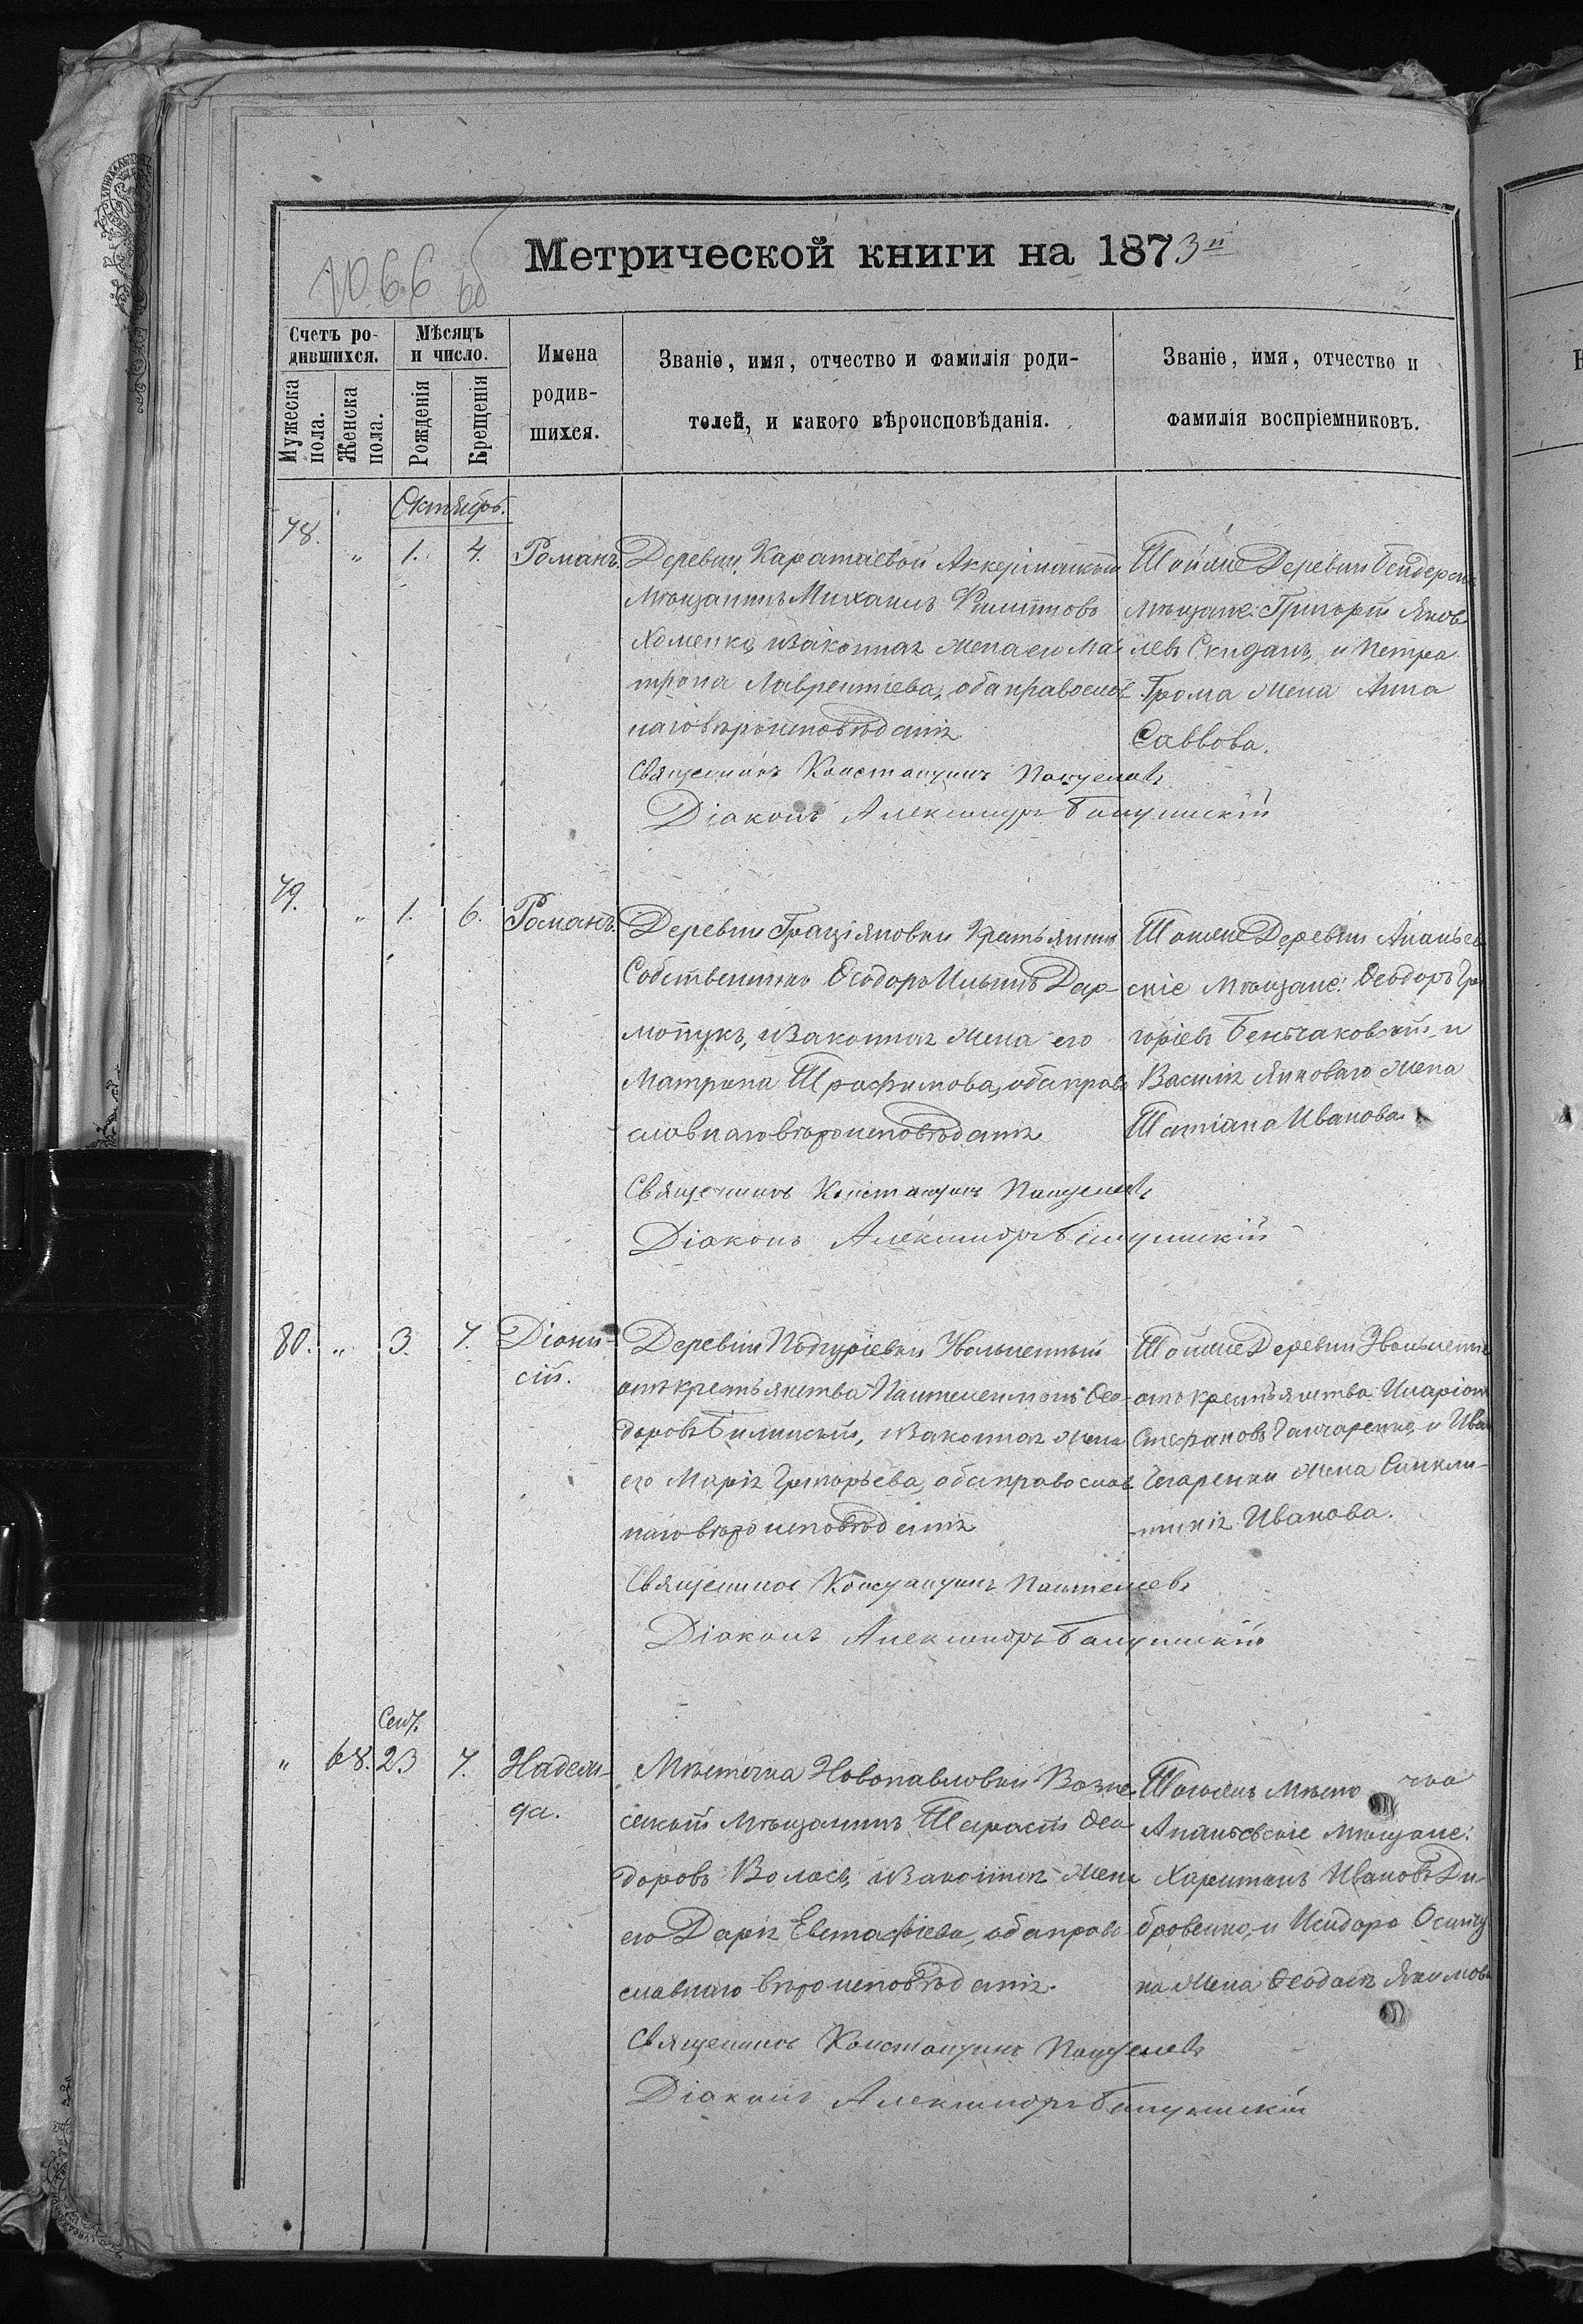 1066 об
Метрической книги на 1873й
Счетъ ро-
дившихся.
Мѣсяцъ
и число.
Мужеска
пола.
Женска
пола.
Рожденія
Крещенія
Имена
родив-
шихся.
Званіе, имя, отчество и фамилія роди-
телей, и какого вѣроисповѣданія.
Званіе, имя, отчество и
фамилія воспріемниковъ.
Октябрь.
78. " 1. 4. Романъ.
Деревни Каратаевой Аккерманскій
Мѣщанинъ Михаилъ Филипповъ
Хоменко, и законная жена его Ма-
трона Лаврентіева, оба православ
наго вѣроисповѣданія
Священникъ Константинъ Пантелеевъ
Діаконъ Александръ
Тойже Деревни Бендерскіе
мѣщане: Григорій Яков-
левъ Скиданъ, и Петра
Грома жена Анна
Саввова.
79. " 1. 6. Романъ.
Деревни Граціяновки Крестьянинъ
Собственникъ Ѳеодоръ Ильинъ Дар-
мопукъ, и законная жена его
Матрона Трофимова, оба право
славнаго вѣроисповѣданія
Священникъ Константинъ Пантелеевъ
Діаконъ Александръ
Тойже Деревни Ананьев
скіе Мѣщане: Ѳеодоръ Гри
горіевъ и
Василія жена
Татіана Иванова.
80. " 3. 7. Діони-
сій.
Деревни Подгуріевки Увольненный
отъ крестьянства Пантелеимонъ Ѳео-
доровъ Билинскій, и законная жена
его Марія Григорьева, оба православ
наго вѣроисповѣданія
Священникъ Константинъ Пантелеевъ
Діаконъ Александръ
Тойже Деревни Увольненные
отъ крестьянства: Иларіонъ
Стефановъ Ганчаренко, и Ивана
жена Синкли-
тикія Иванова.
Сент.
" 68. 23 7. Надеж-
да.
Мѣстечка Новопавловки Возне-
сенскій Мѣщанинъ Тарасій Ѳео
доровъ Волосъ, и законная жена
его Дарія Евстафіева, оба право
славнаго вѣроисповѣданія.
Священникъ Константинъ Пантелеевъ
Діаконъ Александръ
Тогоже Мѣсте чка
Ананьевскіе мѣщане:
Харитонъ Ивановъ Ди-
бровенко, и Исидора
на жена Ѳеодосія Якимова